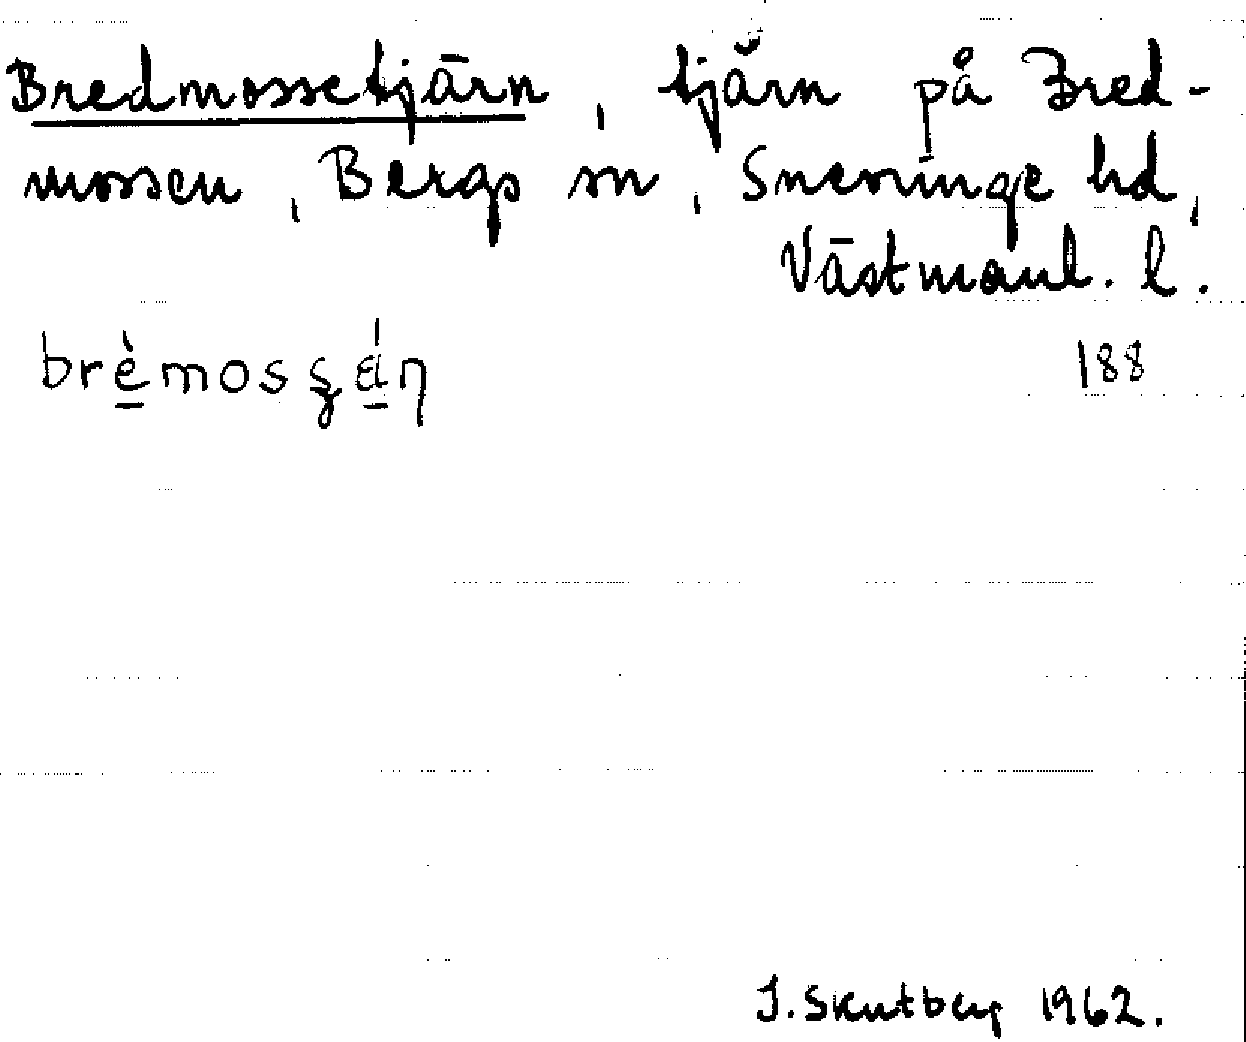 Bredmossetjärn, tjärn på Bred-
mossen, Bergs sn, Snevringe hd,
Västmanl. l.
188
J. Skutberg 1962.